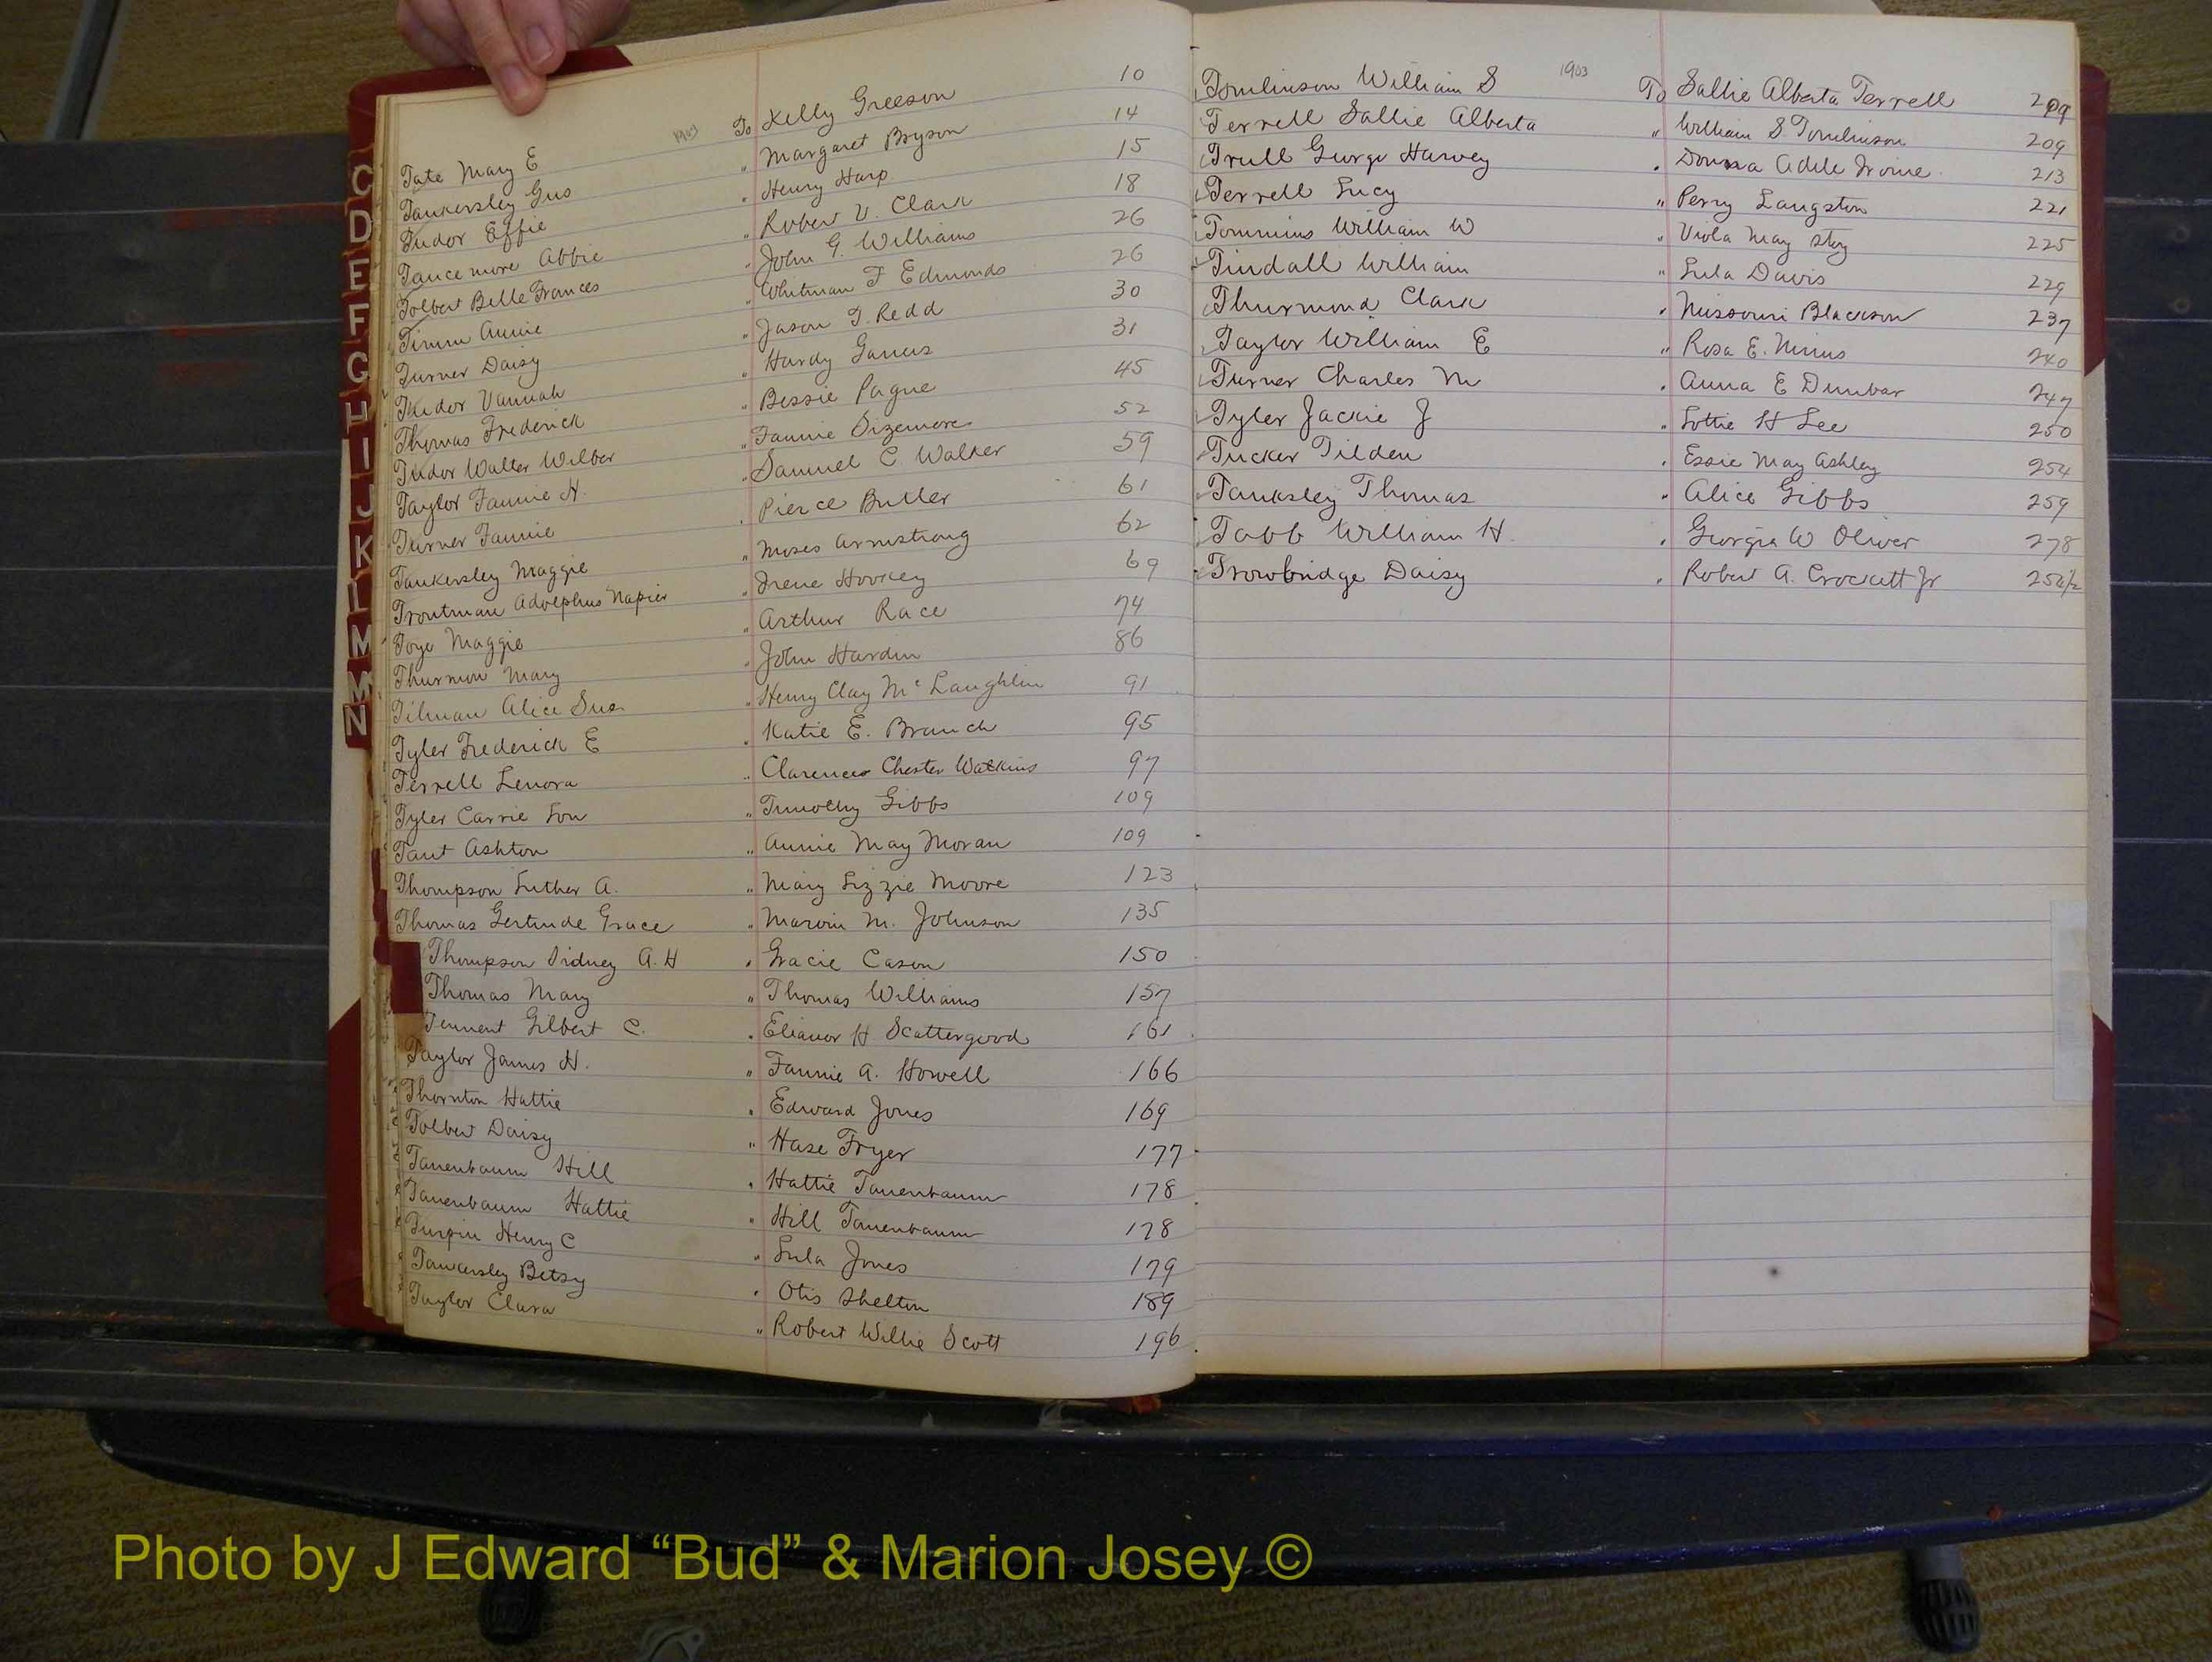 1903
Tate Mary E To Kelly Greeson 10
Tankersley Gus " Margaret Bryson 14
Tudor Effie " Henry Harp 15
Abbie " Robert V. Clark 18
Tolbert Belle Frances " John G. Williams 26
Timm Annie " Whitman F Edmonds 26
Turner Daisy " Jason T. Redd 30
Tudor Vannah " Hardy 31
Thomas Frederick " Bessie Pague 45
Tudor Walter Wilber " Fannie Sizemore 52
Taylor Fannie H. " Samuel C. Walker 59
Turner Fannie " Pierce Butler 61
Tankersley Maggie " Moses Armstrong 62
Troutman Adolphus Napier " Irene Hookey 69
Toye Maggie " Arthur Race 74
Mary " John Hardin 86
Tilman Alice Sue " Henry Clay McLaughlin 91
Tyler Frederick E " Katie E. Branch 95
Terrell Lenora " Clarence Chester Watkins 97
Tyler Carrie Lou " Timothy Gibbs 109
Tant Ashton " Annie May Moran 109
Thompson Luther A. " Mary Lizzie Moore 123
Thomas Gertrude Grace " Marvin M. Johnson 135
Thompson Sidney A. H " Gracie Cason 150
Thomas Mary " Thomas Williams 157
Tennent Gilbert C. " Elianor H Scattergood 161
Taylor James H. " Fannie A. Howell 166
Thornton Hattie " Edward Jones 169
Tolbert Daisy " Hase Fryer 177
Tanenbaum Hill " Hattie Tanenbaum 178
Tanenbaum Hattie " Hill Tanenbaum 178
Turpin Henry C " Lula Jones 179
Tankersley Betsy " Otis Shelton 189
Taylor Clara " Robert Willie Scott 196
Tomlinson William S 1903 To Sallie Alberta Terrell 209
Terrell Sallie Alberta " William S Tomlinson 209
Trull George Harvey " Donna Adele Irvine 213
Terrell Lucy " Perry Langston 221
Tommins William W " Viola May Story 225
Tindall William " Lula Davis 229
Thurmond Clark " Missouri Blackson 237
Taylor William E " Rosa E. Nimms 240
Turner Charles M " Anna E Dunbar 247
Tyler Jackie J " Lottie H Lee 250
Tucker Tilden " Essie May Ashley 254
Tanksley Thomas " Alice Gibbs 259
Tabb William H. " Georgia W Oliver 278
Trowbridge Daisy " Robert A. Crockett Jr 254½
C
D
E
F
G
H
I
J
K
L
M
M
N
Photo by J Edward “Bud” & Marion Josey ©